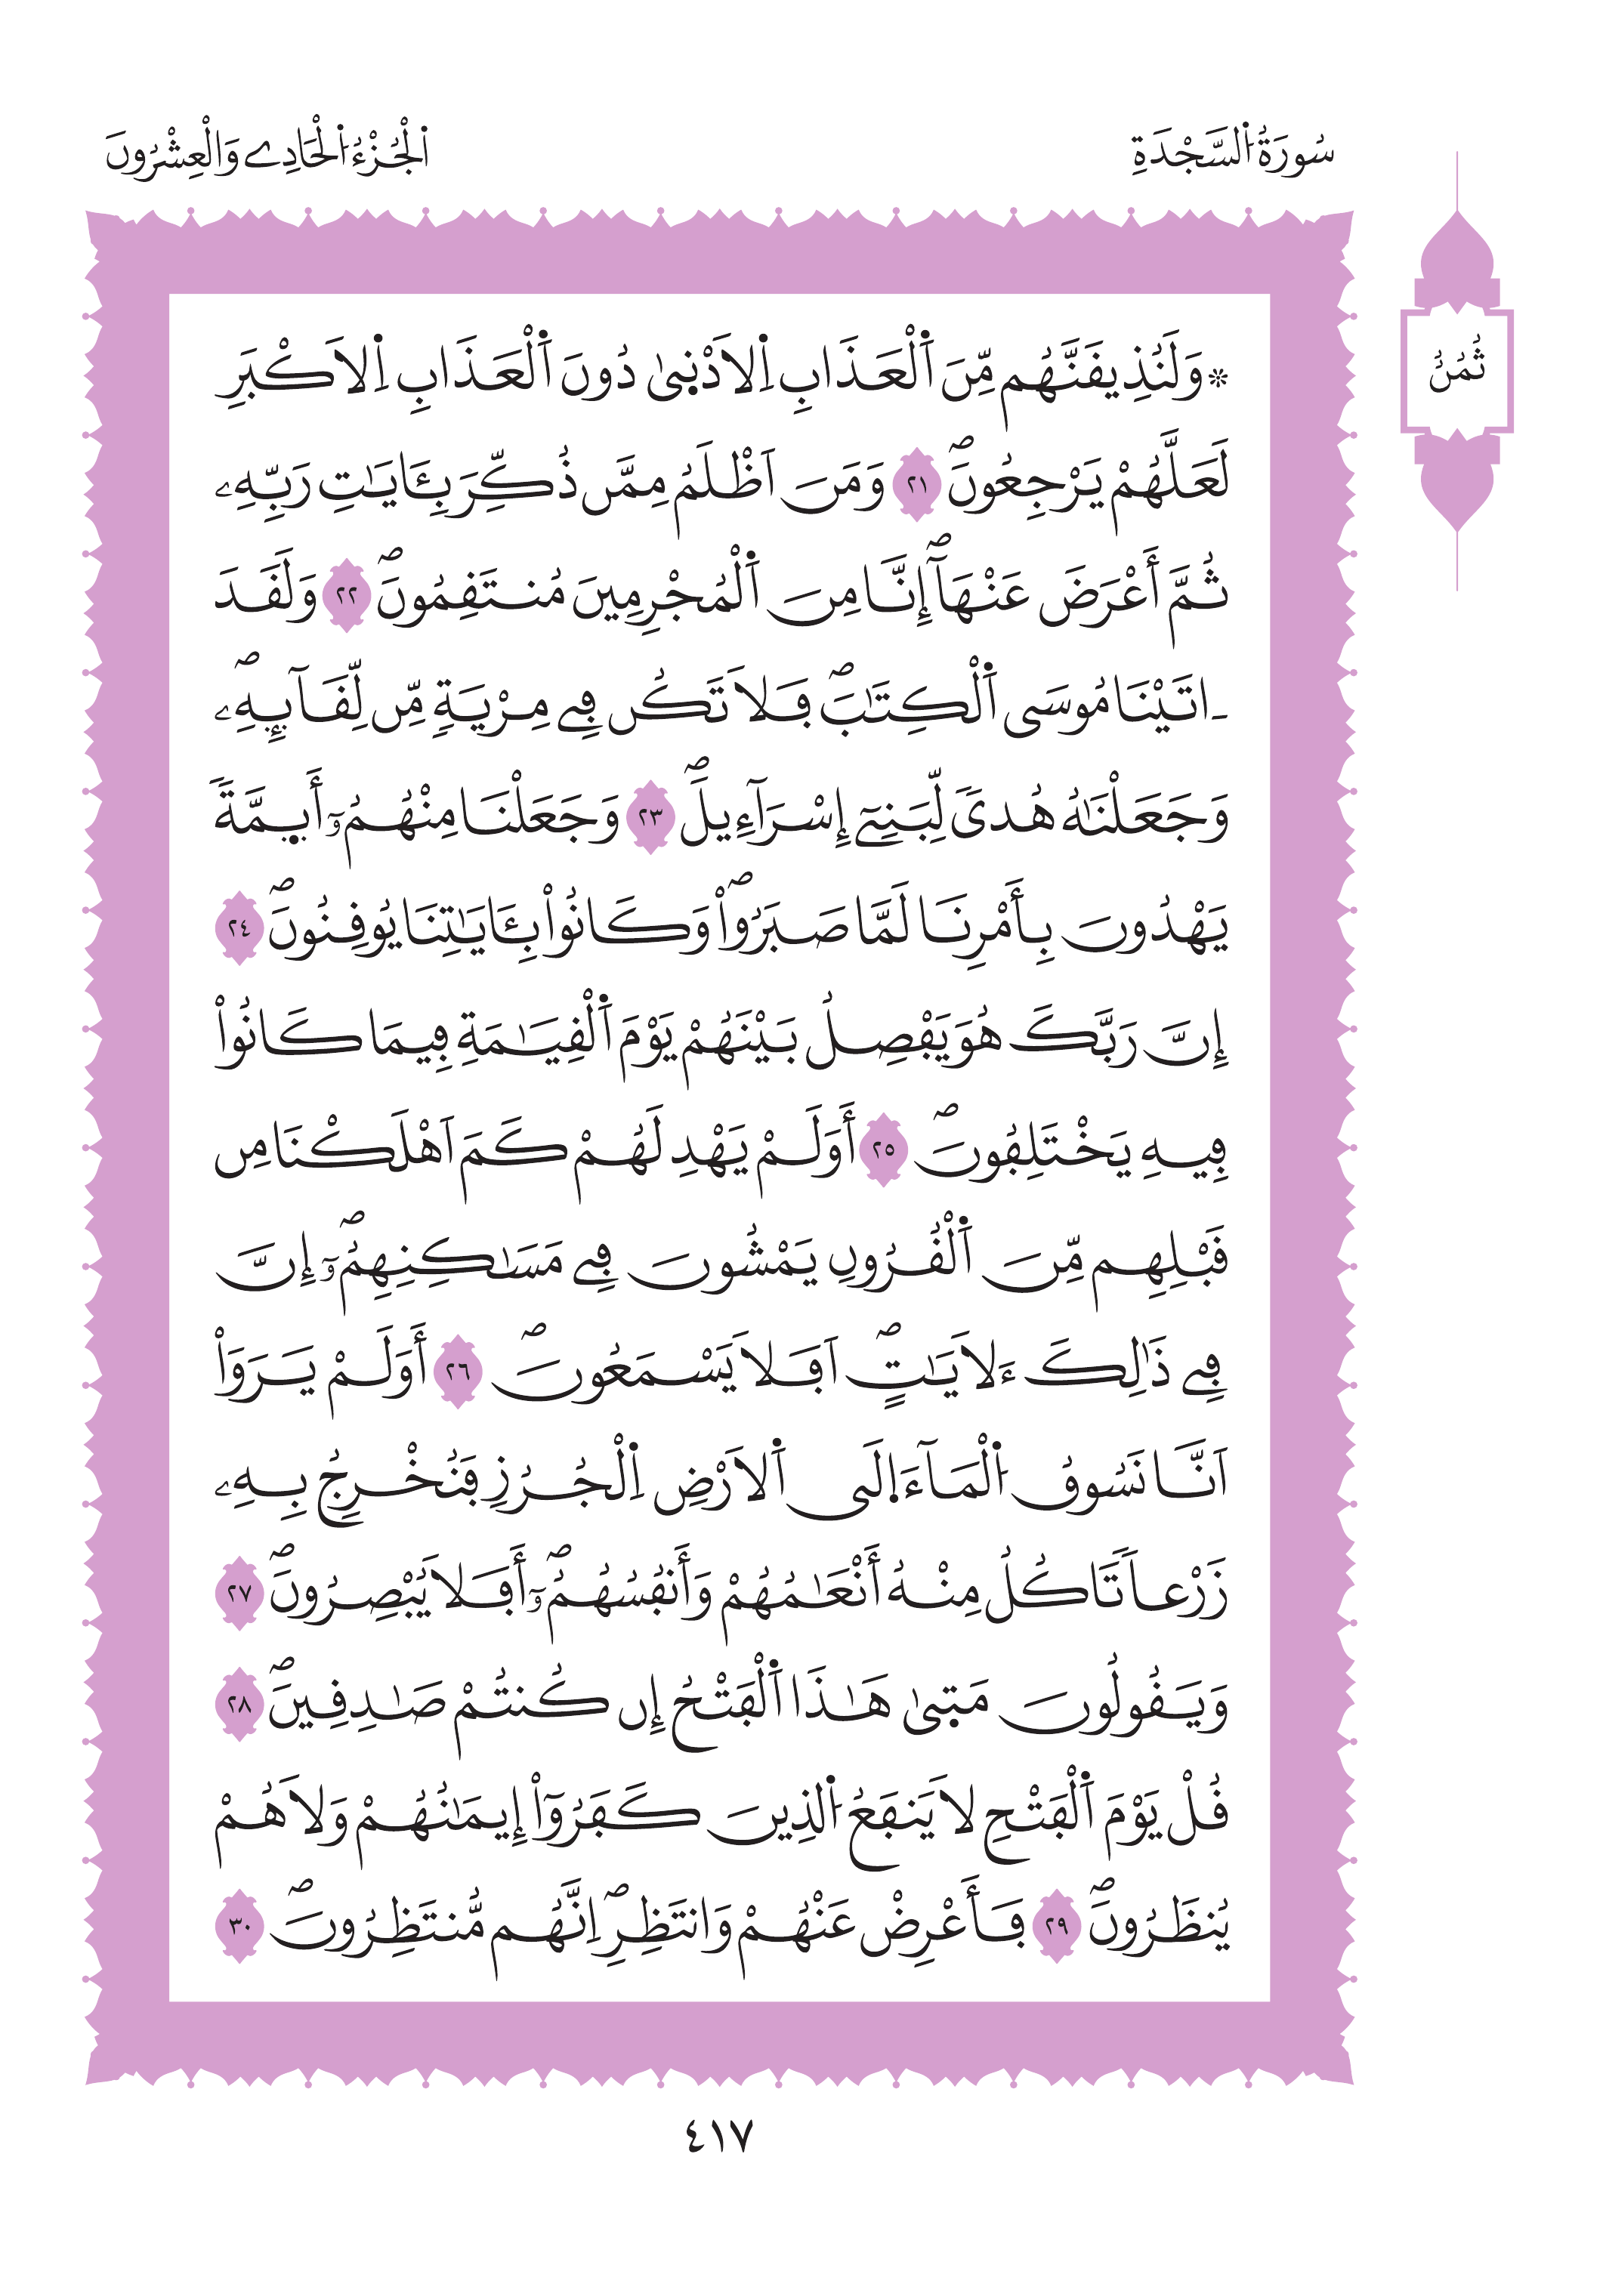 سُورَةُ اُلسَّجْدَةِ
اَلْجُزْءُ اُلْحَادِے وَالْعِشْرُونَ
ثُمُنُ
* وَلَنُذِيفَنَّهُم مِّنَ اَلْعَذَابِ اِلَادْنۭيٰ دُونَ اَلْعَذَابِ اِلَاكْبَرِ
لَعَلَّهُمْ يَرْجِعُونَۖ ٢١ وَمَنَ اَظْلَمُ مِمَّن ذُكِّرَ بِـَٔايَٰتِ رَبِّهِۦ
ثُمَّ أَعْرَضَ عَنْهَآۖ إِنَّا مِنَ اَلْمُجْرِمِينَ مُنتَفِمُونَۖ ٢٢ وَلَفَدَ
ـ اتَيْنَا مُوسَى اَلْكِتَٰبَۖ فَلَا تَكُن فِے مِرْيَةٖ مِّن لِّفَآئِهِۦۖ
وَجَعَلْنَٰهُ هُدىٗ لِّبَنِےٓ إِسْرَآءِيلَۖ ٢٣ وَجَعَلْنَا مِنْهُمُۥٓ أَئِمَّةٗ
يَهْدُونَ بِأَمْرِنَا لَمَّا صَبَرُواْۖ وَكَانُواْ بِـَٔايَٰتِنَا يُوفِنُونَۖ ٢٤
إِنَّ رَبَّكَ هُوَ يَفْصِلُ بَيْنَهُمْ يَوْمَ اَلْفِيَٰمَةِ فِيمَا كَانُواْ
فِيهِ يَخْتَلِفُونَۖ ٢٥ أَوَلَمْ يَهْدِ لَهُمْ كَمَ اَهْلَكْنَا مِن
فَبْلِهِم مِّنَ اَلْفُرُونِ يَمْشُونَ فِے مَسَٰكِنِهِمُۥٓۖ إِنَّ
فِے ذَٰلِكَ ءَلَايَٰتٍۖ اَفَلَا يَسْمَعُونَۖ ٢٦ أَوَلَمْ يَرَوَاْ
اَنَّا نَسُوفُ اُلْمَآءَ اِ۬لَى اَلَارْضِ اِلْجُرُزِ فَنُخْرِجُ بِهِۦ
زَرْعاٗ تَاكُلُ مِنْهُ أَنْعَٰمُهُمْ وَأَنفُسُهُمُۥٓۖ أَفَلَا يُبْصِرُونَۖ ٢٧
وَيَفُولُونَ مَتۭيٰ هَٰذَا اَلْفَتْحُ إِن كُنتُمْ صَٰدِفِينَۖ ٢٨
فُلْ يَوْمَ اَلْفَتْحِ لَا يَنفَعُ اُلذِينَ كَفَرُوٓاْ إِيمَٰنُهُمْ وَلَا هُمْ
يُنظَرُونَۖ ٢٩ فَأَعْرِضْ عَنْهُمْ وَانتَظِرِۖ اِنَّهُم مُّنتَظِرُونَۖ ٣٠
٤١٧